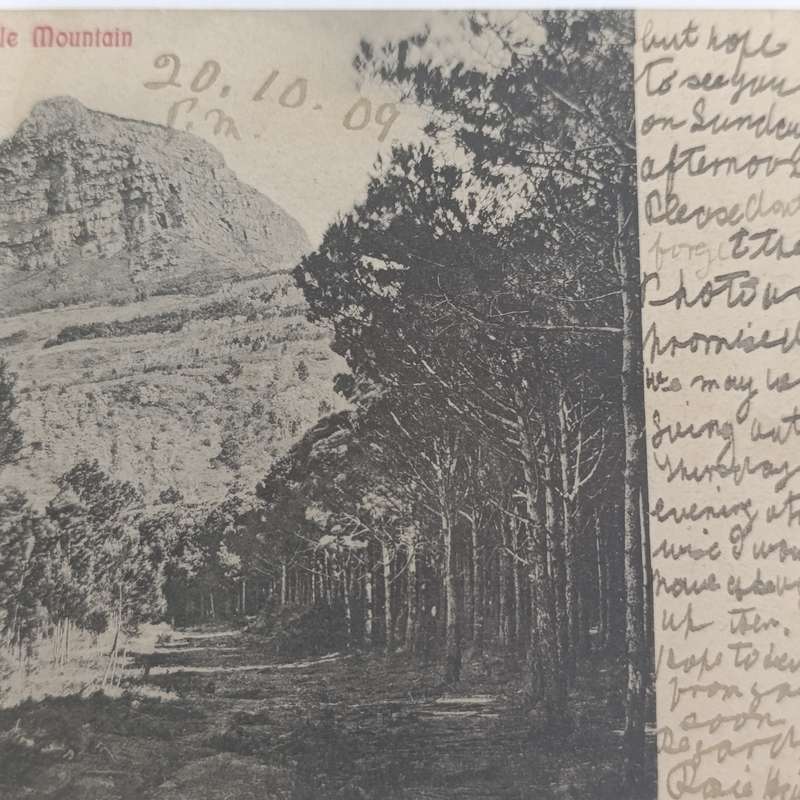 le Mountain
20.10.09
P.m.
but hope
to see you
on Sunday
afternoo
Please dont
forget the
Photo u
promised
We may be
Going out
Thursday
evening ot
wise I wou
have
up then.
hope to
from you
soon
Regard